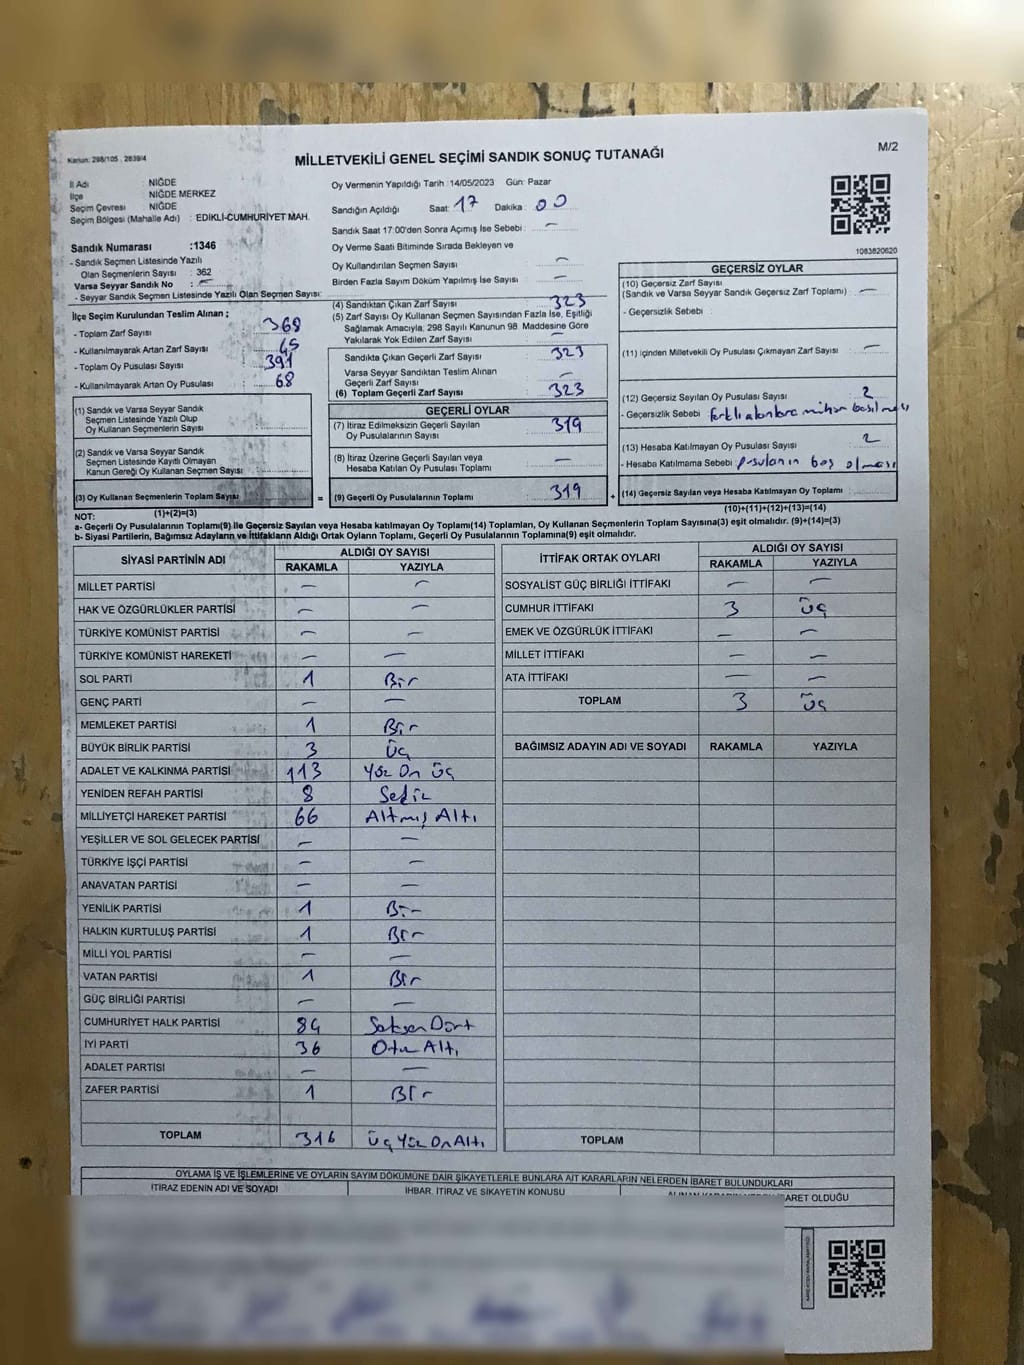 Kanun: 298/105 , 2839/4
MİLLETVEKİLİ GENEL SEÇİMİ SANDIK SONUÇ TUTANAĞI
M/2
İl Adı NİĞDE
İlçe NİĞDE MERKEZ
Seçim Çevresi NİĞDE
Seçim Bölgesi (Mahalle Adı) : EDİKLİ-CUMHURİYET MAH.
Oy Vermenin Yapıldığı Tarih :14/05/2023 Gün: Pazar
Sandığın Açıldığı Saat: 17 Dakika : 00
Sandık Saat 17:00'den Sonra Açımış İse Sebebi : —
Oy Verme Saati Bitiminde Sırada Bekleyen ve
Oy Kullandırılan Seçmen Sayısı —
Birden Fazla Sayım Döküm Yapılmış İse Sayısı : —
1083820620
Sandık Numarası :1346
- Sandık Seçmen Listesinde Yazılı
Olan Seçmenlerin Sayısı : 362
Varsa Seyyar Sandık No : —
- Seyyar Sandık Seçmen Listesinde Yazılı Olan Seçmen Sayısı:
İlçe Seçim Kurulundan Teslim Alınan ;
- Toplam Zarf Sayısı : 368
- Kullanılmayarak Artan Zarf Sayısı : 45
- Toplam Oy Pusulası Sayısı : 391
- Kullanılmayarak Artan Oy Pusulası : 68
(1) Sandık ve Varsa Seyyar Sandık
Seçmen Listesinde Yazılı Olup
Oy Kullanan Seçmenlerin Sayısı :
(2) Sandık ve Varsa Seyyar Sandık
Seçmen Listesinde Kayıtlı Olmayan
Kanun Gereği Oy Kullanan Seçmen Sayısı :
(3) Oy Kullanan Seçmenlerin Toplam Sayısı :
(1)+(2)=(3)
(4) Sandıktan Çıkan Zarf Sayısı : 323
(5) Zarf Sayısı Oy Kullanan Seçmen Sayısından Fazla İse, Eşitliği
Sağlamak Amacıyla, 298 Sayılı Kanunun 98. Maddesine Göre
Yakılarak Yok Edilen Zarf Sayısı : —
Sandıkta Çıkan Geçerli Zarf Sayısı : 323
Varsa Seyyar Sandıktan Teslim Alınan
Geçerli Zarf Sayısı : —
(6) Toplam Geçerli Zarf Sayısı : 323
GEÇERLİ OYLAR
(7) İtiraz Edilmeksizin Geçerli Sayılan
Oy Pusulalarının Sayısı : 319
(8) İtiraz Üzerine Geçerli Sayılan veya
Hesaba Katılan Oy Pusulası Toplamı : —
= (9) Geçerli Oy Pusulalarının Toplamı : 319 +
GEÇERSİZ OYLAR
(10) Geçersiz Zarf Sayısı
(Sandık ve Varsa Seyyar Sandık Geçersiz Zarf Toplamı) : —
- Geçersizlik Sebebi :
(11) İçinden Milletvekili Oy Pusulası Çıkmayan Zarf Sayısı : —
(12) Geçersiz Sayılan Oy Pusulası Sayısı : 2
- Geçersizlik Sebebi : farklı alanlara mühür basılması
(13) Hesaba Katılmayan Oy Pusulası Sayısı : 2
- Hesaba Katılmama Sebebi : pusulanın boş olması
(14) Geçersiz Sayılan veya Hesaba Katılmayan Oy Pusulası Toplamı :
(10)+(11)+(12)+(13)=(14)
NOT:
a- Geçerli Oy Pusulalarının Toplamı(9) ile Geçersiz Sayılan veya Hesaba katılmayan Oy Toplamı(14) Toplamları, Oy Kullanan Seçmenlerin Toplam Sayısına(3) eşit olmalıdır. (9)+(14)=(3)
b- Siyasi Partilerin, Bağımsız Adayların ve İttifakların Aldığı Ortak Oyların Toplamı, Geçerli Oy Pusulalarının Toplamına(9) eşit olmalıdır.
SİYASİ PARTİNİN ADI ALDIĞI OY SAYISI
RAKAMLA YAZIYLA
MİLLET PARTİSİ — —
HAK VE ÖZGÜRLÜKLER PARTİSİ — —
TÜRKİYE KOMÜNİST PARTİSİ — —
TÜRKİYE KOMÜNİST HAREKETİ — —
SOL PARTİ 1 Bir
GENÇ PARTİ — —
MEMLEKET PARTİSİ 1 Bir
BÜYÜK BİRLİK PARTİSİ 3 Üç
ADALET VE KALKINMA PARTİSİ 113 Yüz On Üç
YENİDEN REFAH PARTİSİ 8 Sekiz
MİLLİYETÇİ HAREKET PARTİSİ 66 Altmış Altı
YEŞİLLER VE SOL GELECEK PARTİSİ — —
TÜRKİYE İŞÇİ PARTİSİ — —
ANAVATAN PARTİSİ — —
YENİLİK PARTİSİ 1 Bir
HALKIN KURTULUŞ PARTİSİ 1 Bir
MİLLİ YOL PARTİSİ — —
VATAN PARTİSİ 1 Bir
GÜÇ BİRLİĞİ PARTİSİ — —
CUMHURİYET HALK PARTİSİ 84 Seksen Dört
İYİ PARTİ 36 Otuz Altı
ADALET PARTİSİ — —
ZAFER PARTİSİ 1 Bir
TOPLAM 316 Üç Yüz On Altı
İTTİFAK ORTAK OYLARI ALDIĞI OY SAYISI
RAKAMLA YAZIYLA
SOSYALİST GÜÇ BİRLİĞİ İTTİFAKI — —
CUMHUR İTTİFAKI 3 Üç
EMEK VE ÖZGÜRLÜK İTTİFAKI — —
MİLLET İTTİFAKI — —
ATA İTTİFAKI — —
TOPLAM 3 Üç
BAĞIMSIZ ADAYIN ADI VE SOYADI RAKAMLA YAZIYLA
TOPLAM
OYLAMA İŞ VE İŞLEMLERİNE VE OYLARIN SAYIM DÖKÜMÜNE DAİR ŞİKAYETLERLE BUNLARA AİT KARARLARIN NELERDEN İBARET BULUNDUKLARI
İTİRAZ EDENİN ADI VE SOYADI İHBAR, İTİRAZ VE ŞİKAYETİN KONUSU